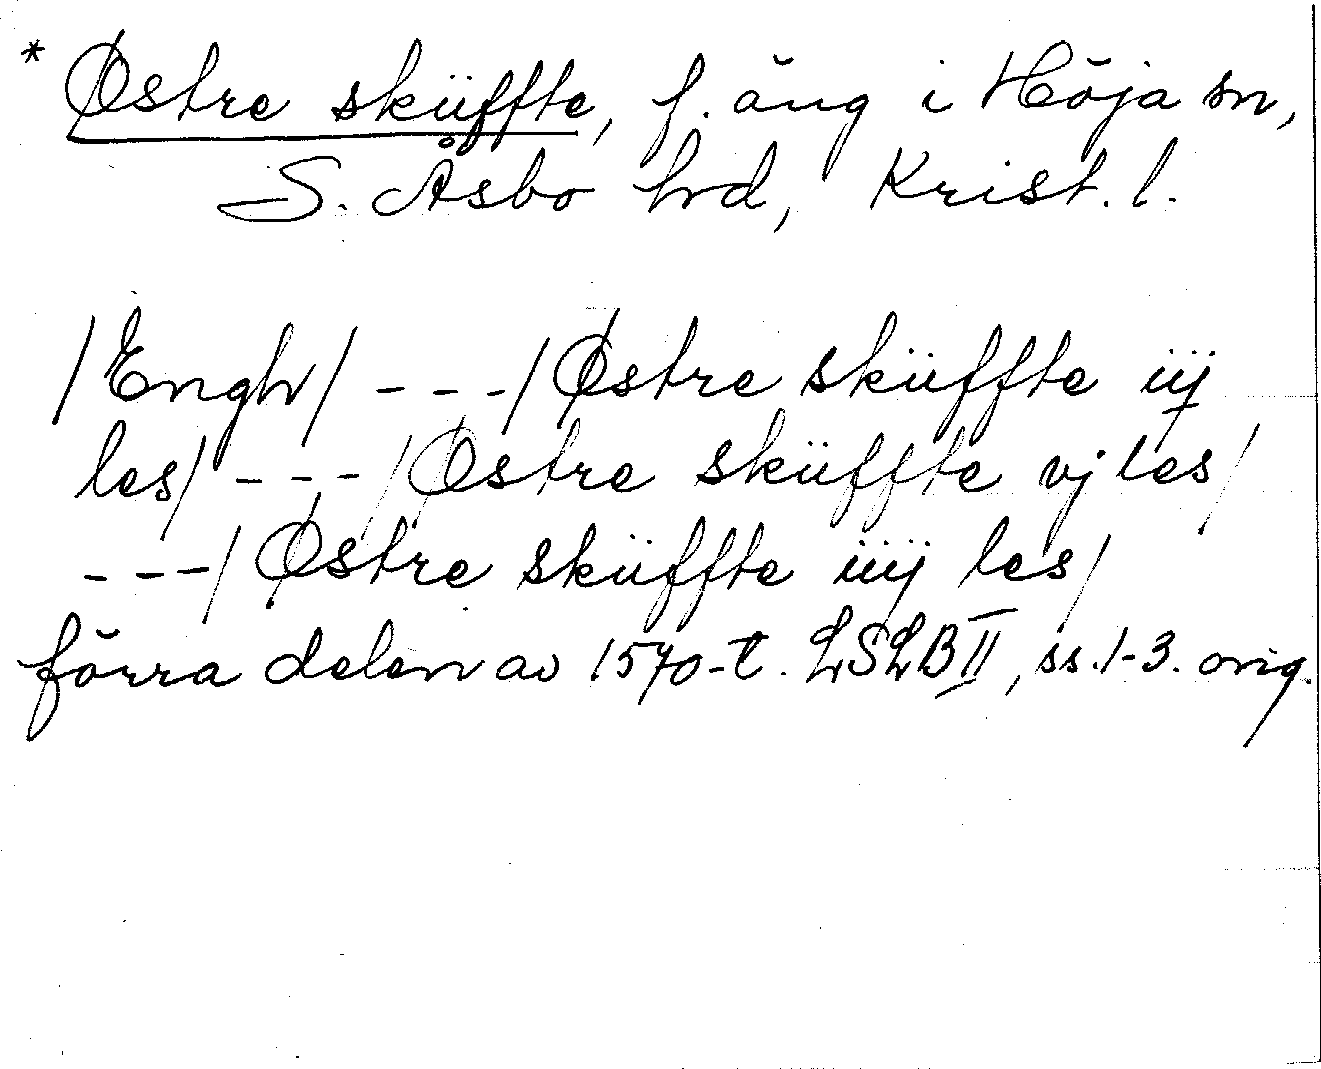 * Østre sküffte, f. äng i Höja sn,
S. Åsbo hrd, Krist. l.
/Engh/ - - - / Østre sküffte iij
les/ - - - / Østre sküffte vj les/
- - - / Østre sküffte iiij les/
förra delen av 1570-t. LSLB II, ss. 1-3. orig.